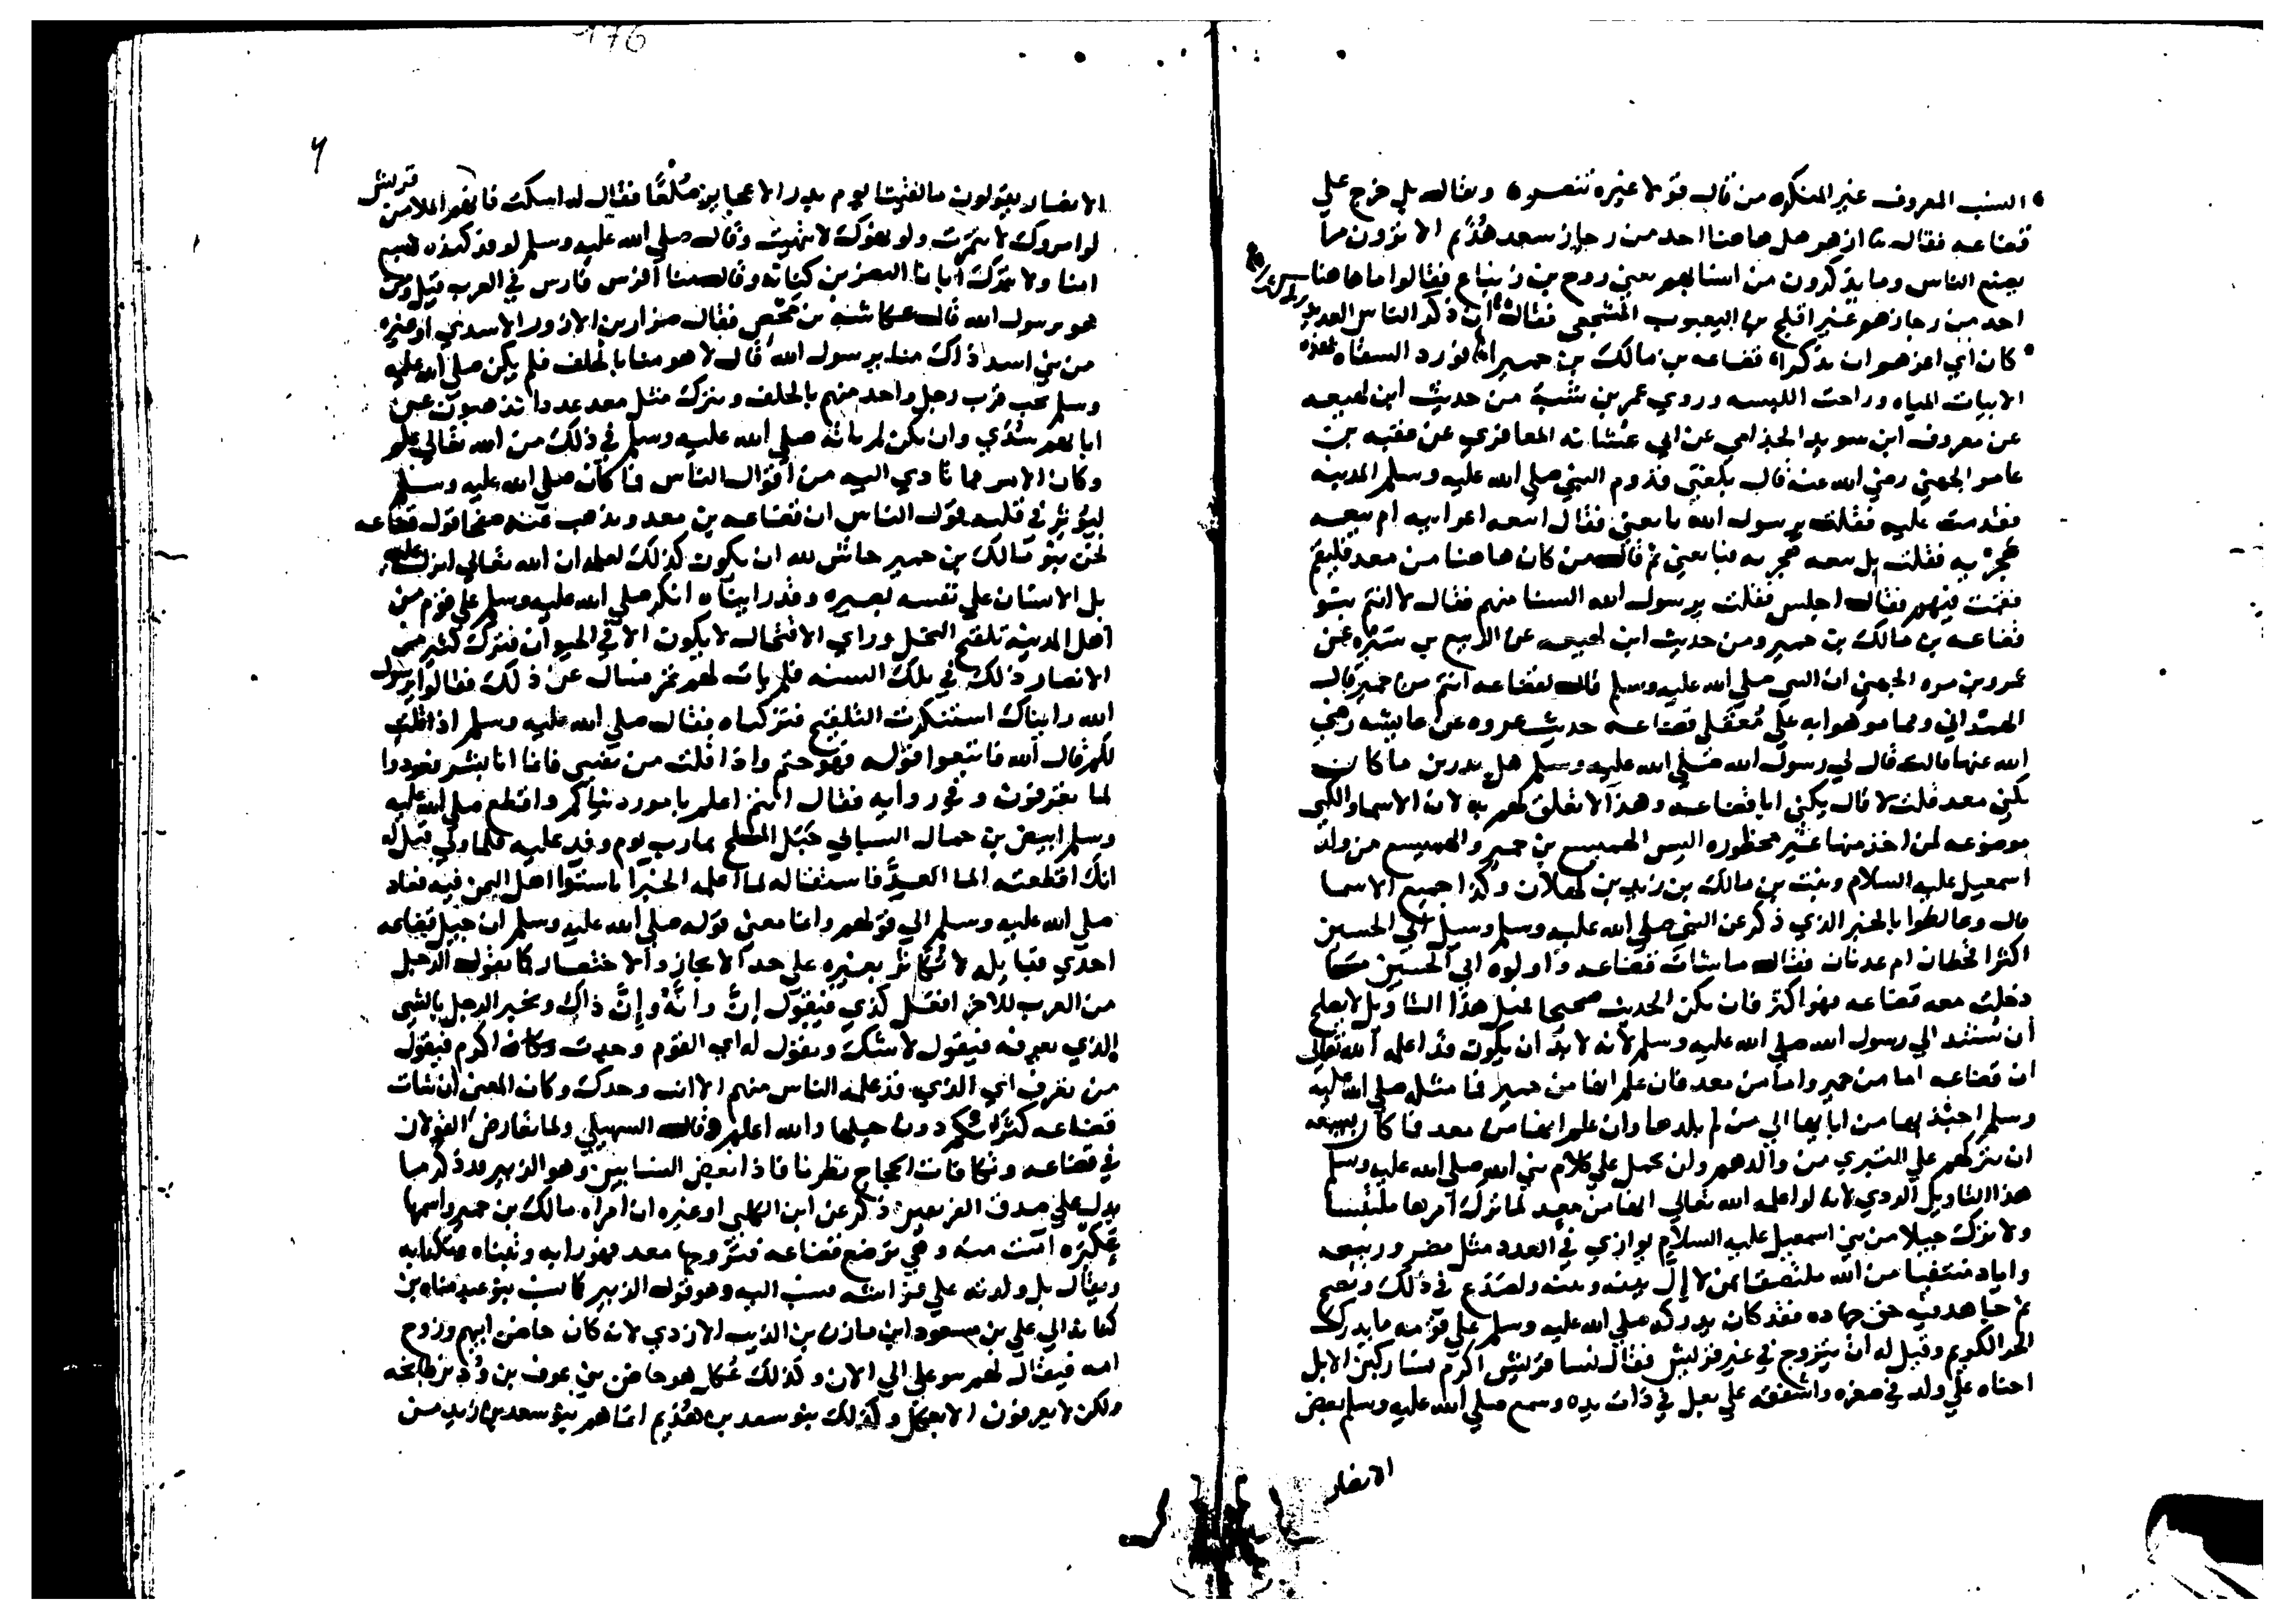 النسب المعروف غير المنكر من قال قولا غيره تنصره ويقال بل خرج علي
قضاعه فقال ما ازهو هل هاهنا احد من رجاز سعد هذيم الا ترون ما
يصنع الناس وما يذكرون من انسابهم يعني روح بن زنباع فقالوا ما هاهنا
احد من رجازهم غير افلح بن اليعبوب المشجعي فقال ان ذكر الناس
كان ابي اعزهم ان يذكروا قضاعه بن مالك بن حمير لنورد السقاه
الابيات المياه وروي عمر بن شبة من حديث ابن لهيعه
عن معروف ابن سويد الجذامي عن ابي عشانه المعافري عن عقبه بن
عامر الجهني رضي الله عنه قال بلغني قدوم النبي صلي الله عليه وسلم المدينه
فقدمت عليه فقلت يرسول الله بايعني فقال ابيعه اعرابيه ام بيعه
هجريه فقلت بل بيعه هجريه فبايعني ثم قال من كان هاهنا من معد فليقم
فقمت فيهم فقال اجلس فقلت يرسول الله السنا منهم فقال لا انتم بنو
قضاعه بن مالك بن حمير ومن حديث ابن لهيعه عن الربيع بن سبره عن
عمرو بن مره الجهني ان النبي صلي الله عليه وسلم قال لقضاعه انتم من حمير قال
الهمداني ومما موهوا به علي مغفلي قضاعه حديث عروه عن عايشه رضي
الله عنها قالت قال لي رسول الله صلي الله عليه وسلم هل يدرين ما كان
يكني معد قلت لا قال يكني ابا قضاعه وهذا لا تعلق لهم به لان الاسما والكني
موضوعه لمن اخذ منها غير محظوره اليس الهميسع بن حمير والهميسع من ولد
اسمعيل عليه السلام ونبت بن مالك بن زيد بن كهلان وكذا جميع الاسما
قال وغالطوا بالخبر الذي ذكر عن النبي صلي الله عليه وسلم وسيل ابي الحسين
اكثر اقحطان ام عدنان فقال ما شات قضاعه واولوه ابي الحسين
دخلت معه قضاعه فهو اكثر فان يكن الحديث صحيحا فمثل هذا التاويل لا يصلح
أن يسند الي رسول الله صلي الله عليه وسلم لانه لا بد ان يكون قد اعلمه الله تعالي
ان قضاعه اما من حمير واما من معد فان علم انها من حمير فما مثله صلي الله عليه
وسلم اجتذبها من ابايها الي من لم يلدها وان علم انها من معد فما كان يسعه
ان يتركهم علي التبري من والدهم ولن يحمل علي كلام نبي الله صلي الله عليه وسلم
هذا التاويل الردي لانه لو اعلمه الله تعالي انها من معد لما ترك امرها ملتبسا
ولا ترك جبيلا من بني اسمعيل عليه السلام يوازي في العدد مثل مضر وربيعه
واياد منتفيا من الله ملتصقا بمن لا إل بينه وبينه ولصدع في ذلك ونصح
ثم جاهد فيه حق جهاده فقد كان يدركه صلي الله عليه وسلم علي قومه ما يدرك
الحر الكريم وقيل له ان يتزوج في غير قريش فقال نسا قريش اكرم نسا ركبن الابل
احناه علي ولد في صغره واشفقه علي بعل في ذات يده وسمع صلي الله عليه وسلم بعض
الانصار
176
الانصار يقولون ما لقينا يوم بدر الا عجايز صلعا فقال له اسكت فانهم الملا من قريش
لو امروك لائتمرت ولو نهوك لانتهيت وقال صلي الله عليه وسلم لوفد كنده لستم
امنا ولا نترك ابانا النضر بن كنانه وقال منا افرس فارس في العرب قيل ومن
هو يرسول الله قال عكاشة بن محصن فقال ضرار بن الازور الاسدي او غيره
من بني اسد ذاك منا يرسول الله قال لا هو منا بالحلف فلم يكن صلي الله عليه
وسلم يحب قرب رجل واحد منهم بالحلف ويترك مثل معد عددا تذهبون عن
ابايهم سدي وان يكن لم ياته صلي الله عليه وسلم في ذلك من الله تعالي علم
وكان الامر مما تادي اليه من اقوال الناس فما كان صلي الله عليه وسلم
ليؤثر في قلبه قول الناس ان قضاعه بن معد ويذهب عنه صفحا قول قضاعه
نحن بنو مالك بن حمير حاش لله ان يكون كذلك لعلمه ان الله تعالي انزل عليه
بل الانسان علي نفسه بصيره وقد راينا انكر صلي الله عليه وسلم علي قوم من
اهل المدينه تلقيح النخل وراي الالقحال لا يكون الا في الحيوان فترك كثير من
الانصار ذلك في تلك السنه فلم يات لهم تمر فسال عن ذلك فقالوا يرسول
الله رايناك استنكرت التلقيح فتركناه فقال صلي الله عليه وسلم اذا قلت
لكم قال الله فاتبعوا قوله فهو حتم واذا قلت من نفسي فانما انا بشر فعودوا
لما تعرفون وفي روايه فقال انتم اعلم بامور دنياكم واقطع صلي الله عليه
وسلم ابيض بن حمال السبائي جبل الملح بمارب يوم وفد عليه فلما ولي قيل له
انك اقطعته الما العد فاستقاله لما اعلمه الخبرا باستوا اهل اليمن فيه فعاد
صلي الله عليه وسلم الي قولهم وانما معني قوله صلي الله عليه وسلم ان جبيل قضاعه
احدي قبايله لا تكاثر بغيره علي حد الايجاز والاختصار كما يقول الرجل
من العرب للاخر افعل كذي فيقول إن وانه وإن ذاك ويخبر الرجل بالشي
الذي يعرفه فيقول لا شك ويقول له اب القوم وحدث وكان اكرم فيقول
من تعرف اي الذي قد علمه الناس منهم الا انت وحدك وكان المعني ان شات
قضاعه كثر دون جيلها والله اعلم وقال السهيلي ولما تعارض القولان
في قضاعه وتكافات الحجاج نظرنا فاذا بعض النسابين وهو الزبير قد ذكر ما
يدل علي صدق الفريقين ذكر عن ابن الكلبي او غيره ان امراه مالك بن حمير واسمها
عكبره امت منه وهي ترضع قضاعه فتزوجها معد فهو رابه وتبناه وتكنا به
ويقال بل ولدته علي فراشه فنسب اليه وهو قول الزبير كما نسب بنو عبد مناه بن
كنانه الي علي بن مسعود ابن مازن بن الذيب الازدي لانه كان حاضن ابيهم وزوج
امه فيقال لهم بنو علي الي الان وكذلك عكل هو حاضن بني عوف بن ود بن طابخه
ولكن لا يعرفون الا بعكل وكذلك بنو سعد بن هذيم انما هم بنو سعد بن زيد من